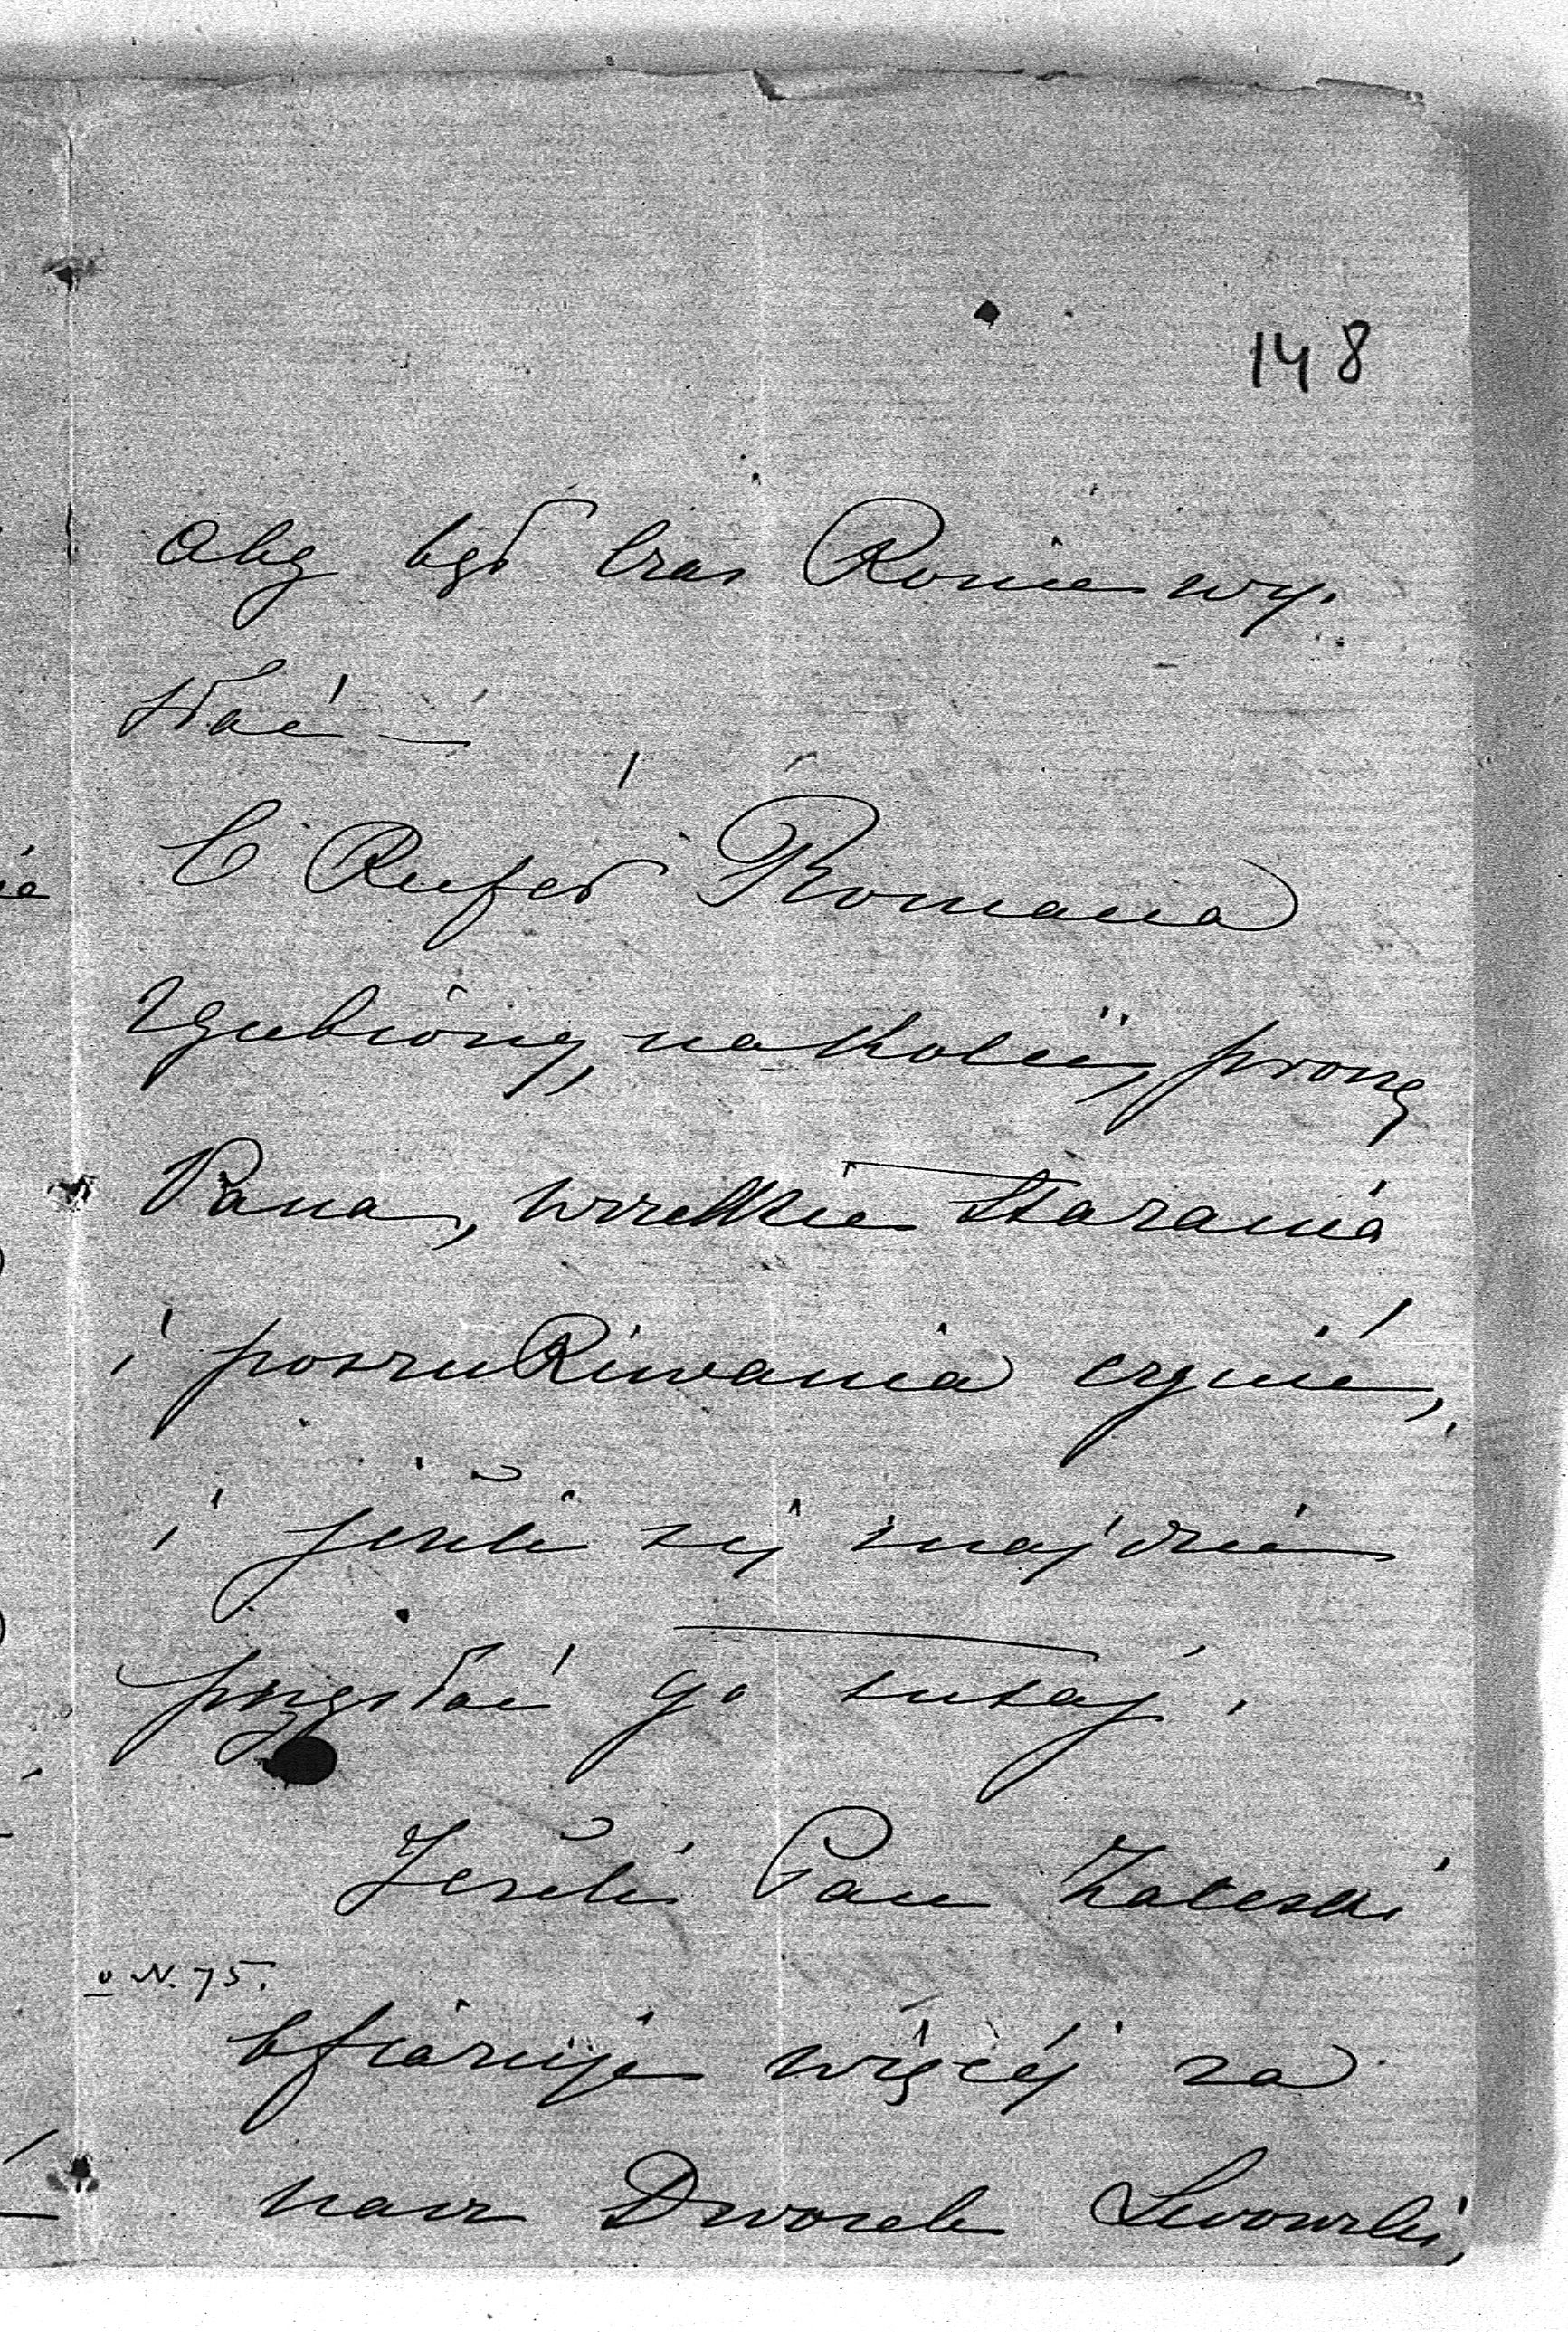 148
aby był czas Konie wy-
słać —
O Kufer Romana
zgubiony, na Kolei, proszę
Pana, wszelkie starania
i poszukiwania czynić,
i jeżeli się znajdzie
przysłać go tutaj.
Jeżeli Pan Zaleski
o N. 75.
ofiaruje więcéj za
nasz Dworek Lwowski,